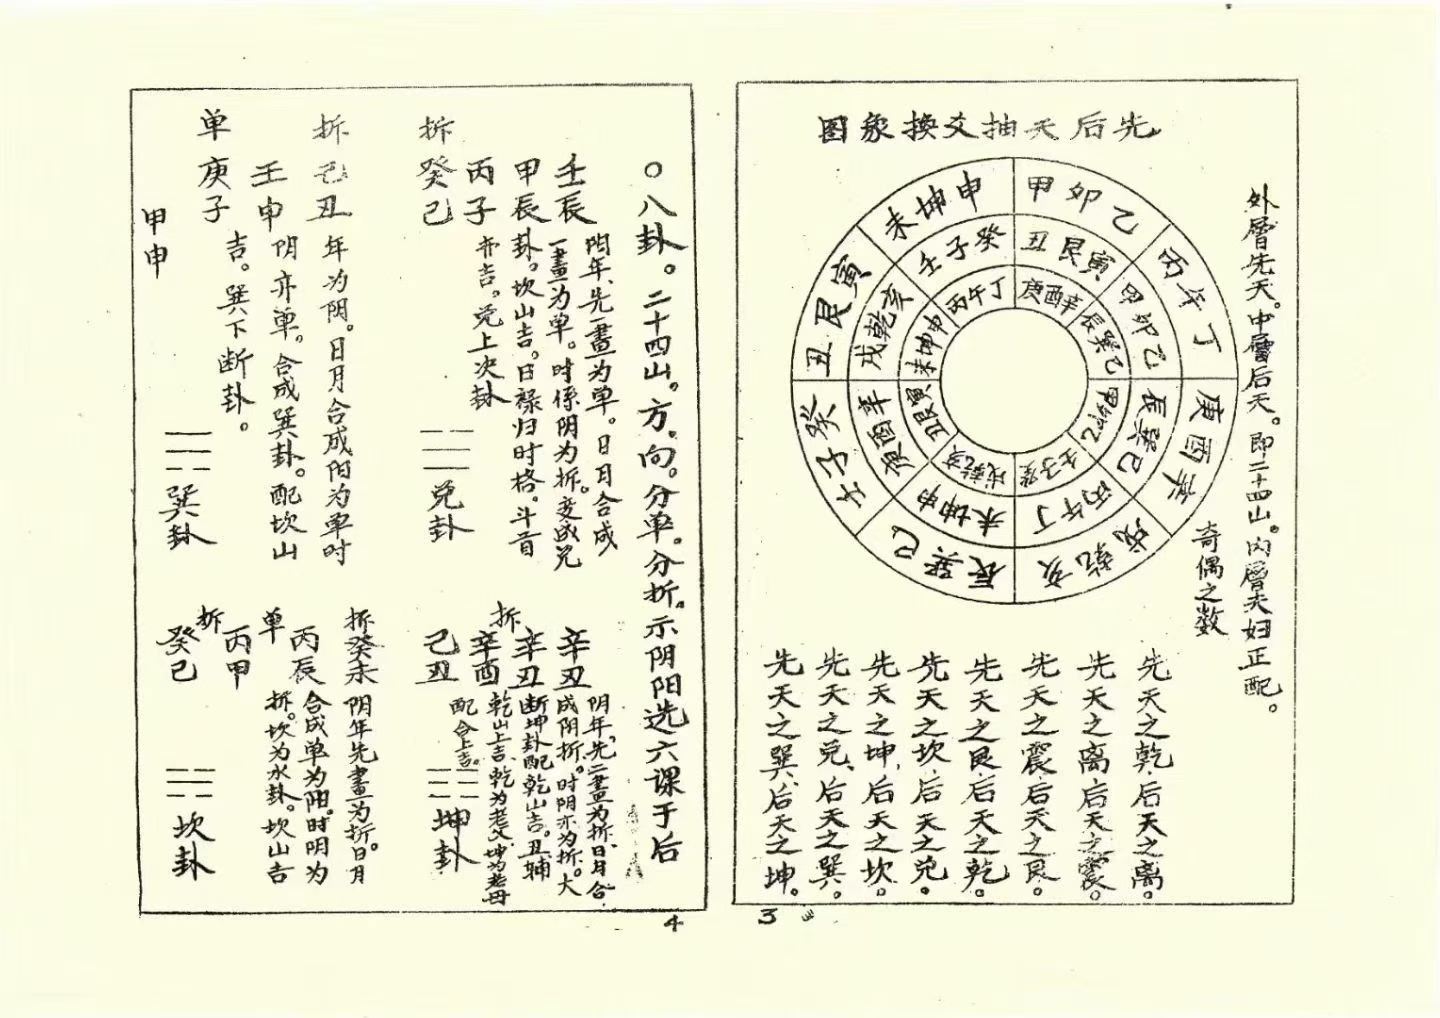 先后天抽爻换象图
外層先天。中層后天。即二十四山。内層夫妇正配。
奇偶之数
甲卯乙
丙午丁
庚酉辛
戌乾亥
辰巽巳
壬子癸
丑艮寅
未坤申
丑艮寅
甲卯乙
辰巽巳
丙午丁
未坤申
庚酉辛
戌乾亥
壬子癸
庚酉辛
辰巽巳
甲卯乙
壬子癸
戌乾亥
丑艮寅
未坤申
丙午丁
先天之乾后天之离。
先天之离后天之震。
先天之震后天之艮。
先天之艮后天之乾。
先天之坎后天之兑。
先天之坤后天之坎。
先天之兑、后天之巽。
先天之巽、后天之坤。
3
○八卦。二十四山。方。向。分单。分拆。示阴阳选六课于后
壬辰
甲辰
丙子
拆癸巳
阳年、先一畫为单。日月合成
一畫为单。时係阴为拆。变成兑
卦。坎山吉。日禄归时格。斗首
亦吉。兑上次卦
兑卦
拆己丑
壬申
单庚子
甲申
年为阴。日月合成阳为单时
阴亦单。合成巽卦。配坎山
吉。巽下断卦。
巽卦
辛丑
拆辛丑
辛酉
己丑
阴年。先二畫为拆、日月合
成阴拆。时阴亦为拆。大
断坤卦配乾山吉。丑辅
乾山上吉、乾为老父、坤为老母
配合上吉。
坤卦
拆癸未
丙辰
单
丙甲
拆
癸巳
阴年先畫为拆。日月
合成单为阳。时阴为
拆。坎为水卦。坎山吉
坎卦
4